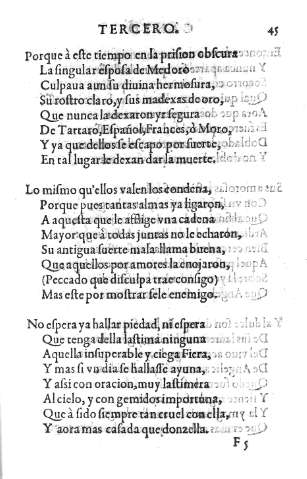 TERCERO. 45
Porque à este tiempo en la prision obscura
La singular esposa de Medoro
Culpaua aun su diuina hermosura,
Su rostro claro, y sus madexas de oro,
Que nunca la dexaron yr segura
De Tartaro, Español, Frances, ò Moro,
Y ya que dellos se escapo por suerte,
En tal lugar le dexan dar la muerte.
Lo mismo qu'ellos valen los condena,
Porque pues tantas almas ya ligaron,
A aquesta que le aflige vna cadena
Mayor que à todas juntas no le echaron,
Su antigua suerte mala llama buena,
Que aquellos por amores la enojaron,
(Peccado que disculpa trae consigo)
Mas este por mostrarsele enemigo.
No espera ya hallar piedad, ni espera
Que tenga della lastima ninguna
Aquella insuperable y ciega Fiera,
Y mas si vu dia se hallasse ayuna,
Y assi con oracion, muy lastimera
Al cielo, y con gemidos importuna,
Que à sido siempre tan cruel con ella,
Y aora mas casada que donzella.
F 5